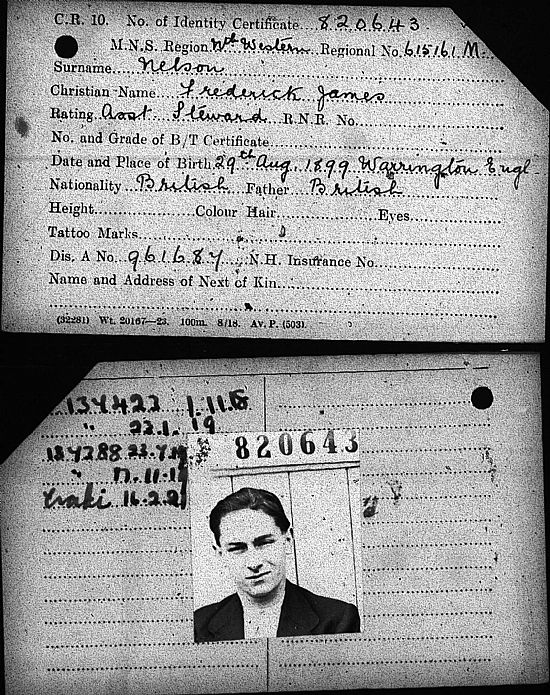 C.R. 10. No. of Identity Certificate 820643
M.N.S. Region Nth Western Regional No. 615161 M.
Surname Nelson
Christian Name Frederick James
Rating Asst Steward R.N.R. No.
No. and Grade of B/T Certificate
Date and Place of Birth 29th Aug. 1899 Warrington Engl
Nationality British Father British
Height Colour Hair Eyes
Tattoo Marks
Dis. A No. 961687 N.H. Insurance No.
Name and Address of Next of Kin
(32281) Wt. 20167—23. 100m. 8/18. Av. P. (503).
134422 1.11.8
" 22.1.19
134288 23.7.19
" 17.11.19
16.2.21
820643